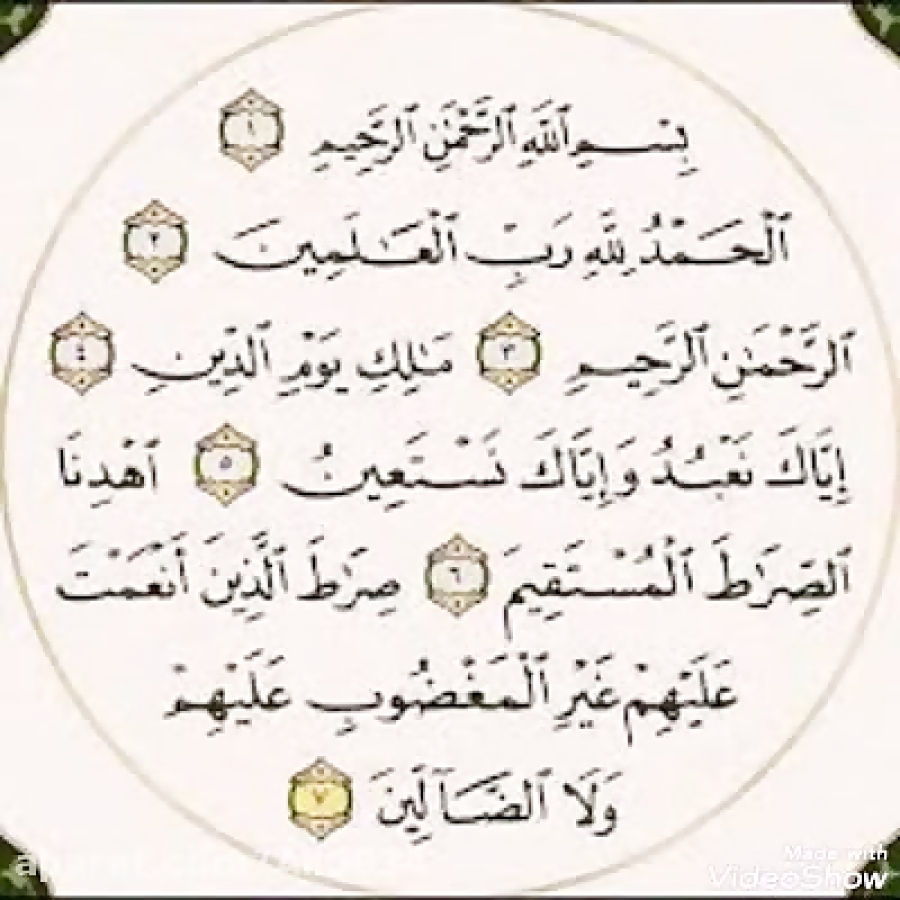 بِسْمِ ٱللَّهِ ٱلرَّحْمَٰنِ ٱلرَّحِيمِ ١
ٱلْحَمْدُ لِلَّهِ رَبِّ ٱلْعَٰلَمِينَ ٢
ٱلرَّحْمَٰنِ ٱلرَّحِيمِ ٣ مَٰلِكِ يَوْمِ ٱلدِّينِ ٤
إِيَّاكَ نَعْبُدُ وَإِيَّاكَ نَسْتَعِينُ ٥ ٱهْدِنَا
ٱلصِّرَٰطَ ٱلْمُسْتَقِيمَ ٦ صِرَٰطَ ٱلَّذِينَ أَنْعَمْتَ
عَلَيْهِمْ غَيْرِ ٱلْمَغْضُوبِ عَلَيْهِمْ
وَلَا ٱلضَّآلِّينَ ٧
Made with
VideoShow